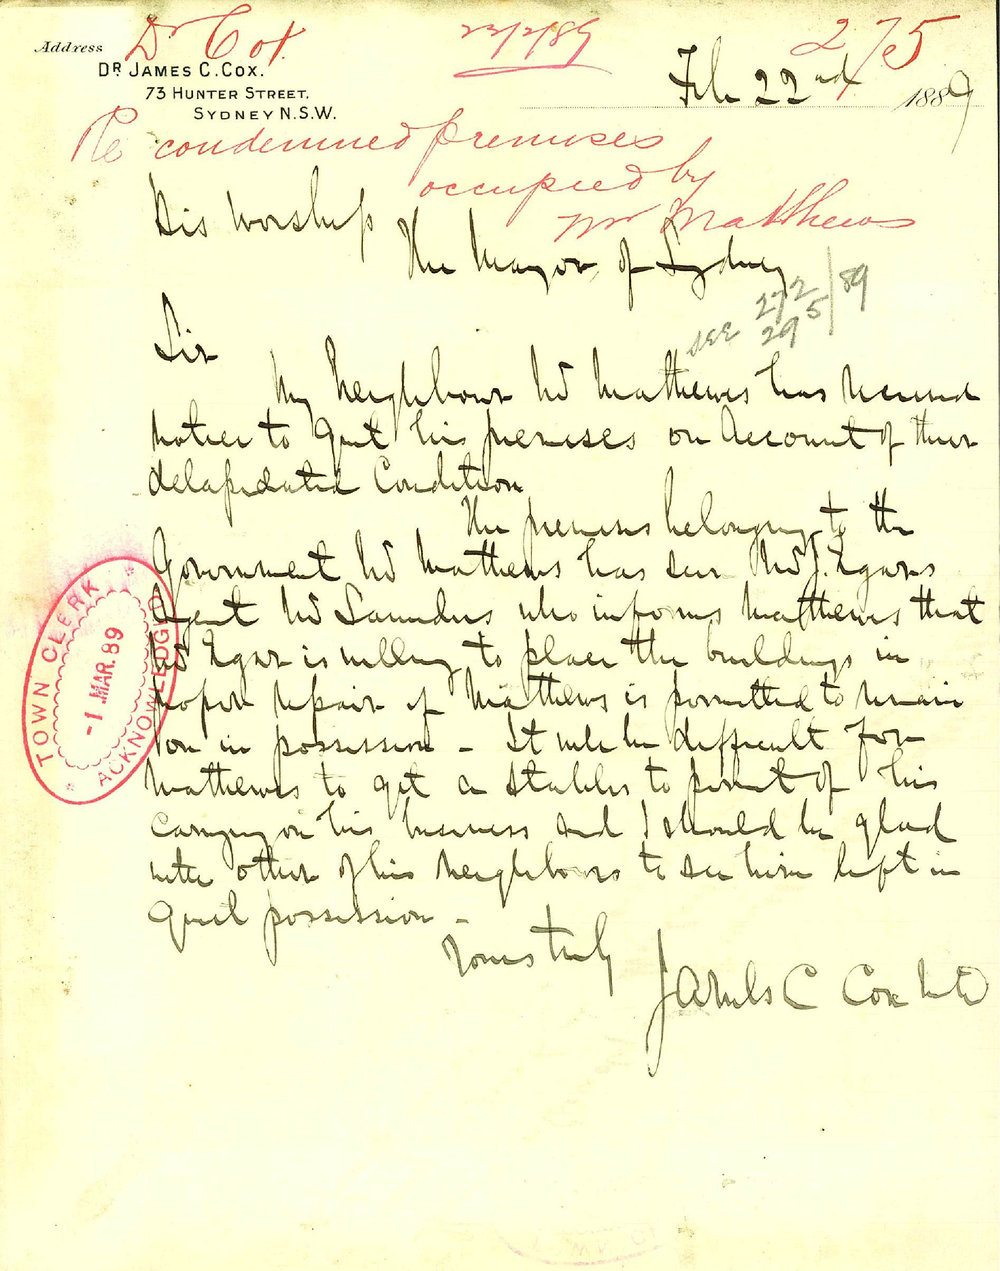 Dr Cox
23/2/89
275
Address
DR JAMES C. COX.
73 HUNTER STREET,
SYDNEY N.S.W.
Feb 22nd 1889
Re condemned premises
occupied by
Mr Matthews
His Worship
The Mayor of Sydney
SEE 272/89
295
Sir
My Neighbour Mr Matthews has received
notice to quit his premises on Account of their
delapidated Condition
The premises belonging to the
Government Mr Matthews has seen Mr J.
Agent Mr Saunders who informs Matthews that
Mr is willing to place the buildings in
proper repair if Matthews is permitted to remain
on in possession - It will be difficult for
Matthews to get a stables to permit of his
carrying on his business and I should be glad
with other of his neighbours to see him left in
quiet possession -
Yours truly
James C Cox MD
TOWN CLERK
-1 MAR. 89
ACKNOWLEDGED